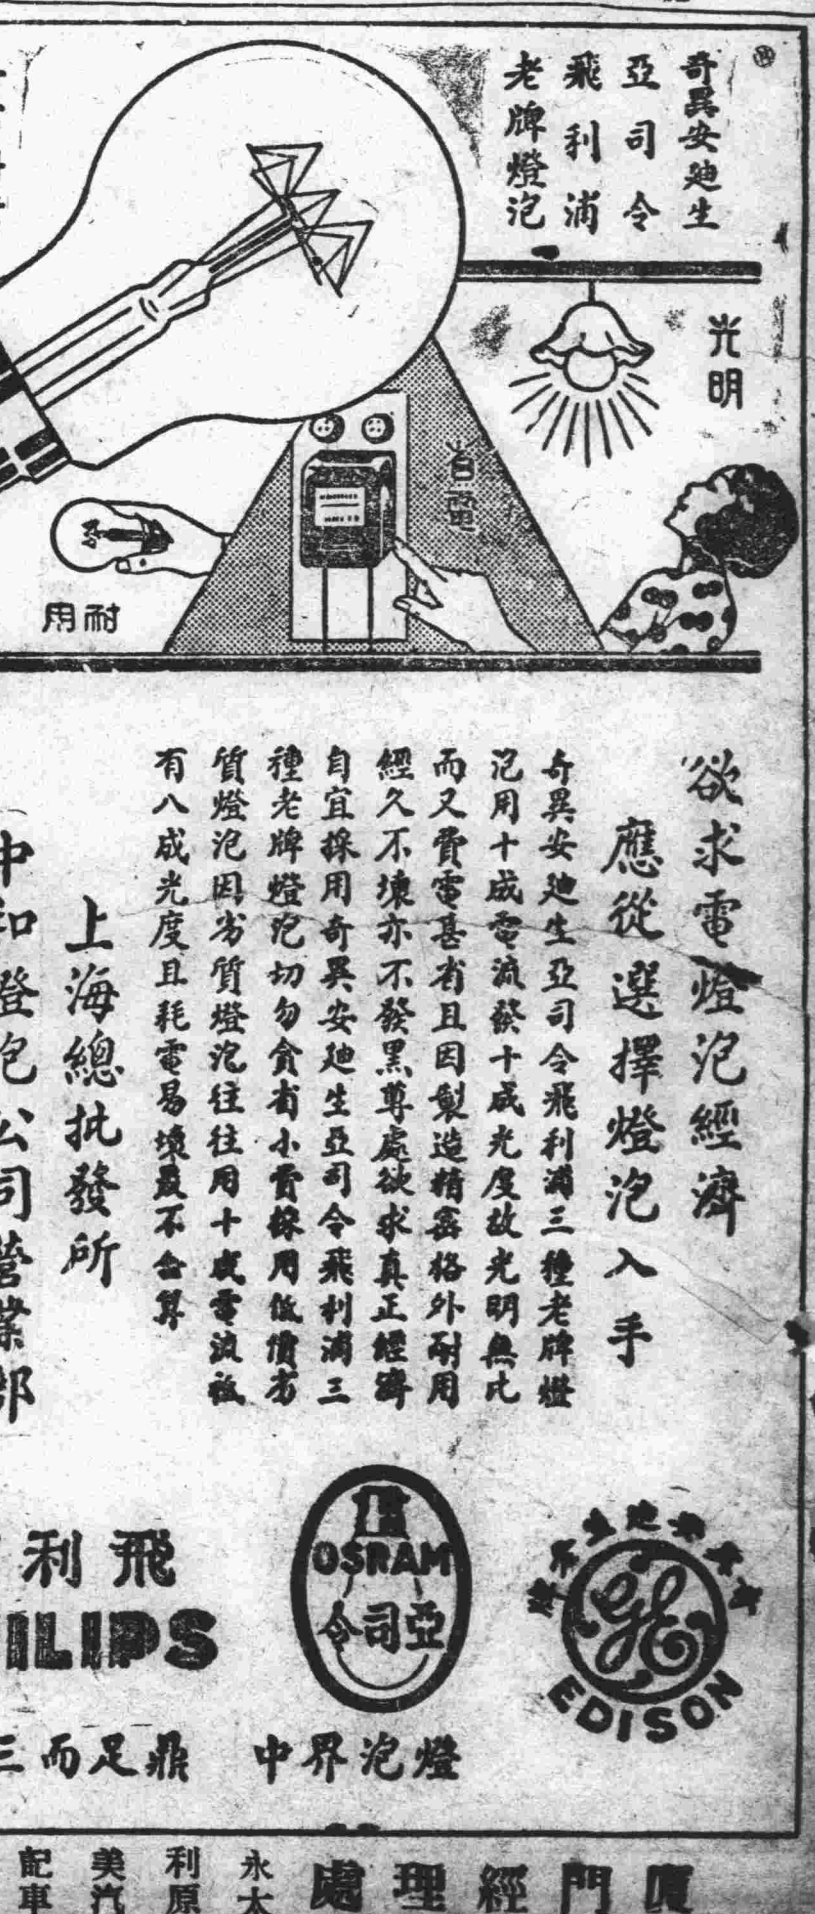 奇異安迪生
亞司令
飛利浦
老牌燈泡
光明
省電
耐用
欲求電燈泡經濟
應從選擇燈泡入手
奇異安迪生亞司令飛利浦三種老牌燈
泡用十成電流發十成光度故光明無比
而又費電甚省且因製造精密格外耐用
經久不壞亦不發黑尊處欲求真正經濟
自宜採用奇異安迪生亞司令飛利浦三
種老牌燈泡切勿貪省小費採用低價劣
質燈泡因劣質燈泡往往用十成電流祗
有八成光度且耗電易壞最不合算
上海總批發所
中和燈泡公司營業部
GE
EDISON
OSRAM
亞司令
飛利
ILIPS
燈泡界中
鼎足而三
廈門經理處
永太
利原
美汽
記車